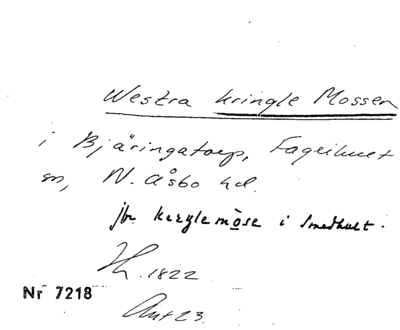 Westra Kringle Mossen
i Bjäringatorp, Fagerhult
sn, N. Åsbo hd.
jfr kringlemose i Smedhult.
1822
Nr 7218
Akt 23.